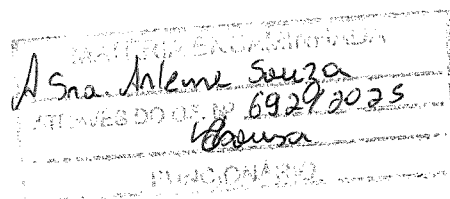 MATÉRIA ENCAMINHADA
A Sra. Arlene Souza
ATRAVÉS DO OF. Nº 692/2025
FUNCIONÁRIO